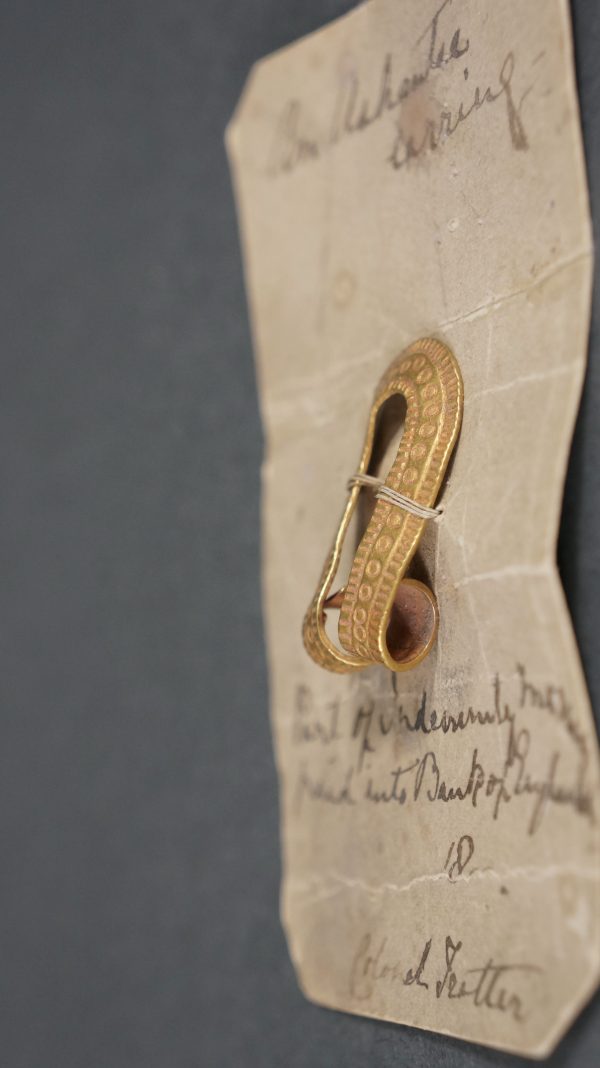 An Ashantee
earring
Part of indemnity money
paid into Bank of England
18
Colonel Trotter